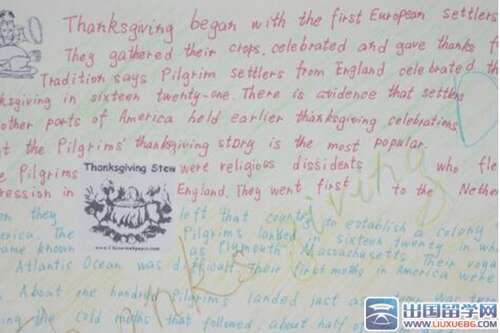 Thanksgiving began with the first European settlers
They gathered their crops, celebrated and gave thanks f
Tradition says Pilgrim settlers from England celebrated th
ksgiving in sixteen twenty-one. There is avidence that settlers
other parts of America held earlier thanksgiving celebrations
t the Pilgrims' thanksgiving story is the most popular.
e Pilgrims were religious dissidents who fle
Thanksgiving Stew
ression in England. They went first to the Nether
on they left that country to establish a colony
erica. The Pilgrims landed in sixteen twenty in wh
ame known as Plymouth Massachusetts Their voya
Atlantic Ocean was difficult Their first months in America were
About one hundred Pilgrims landed just as
ing the cold months that followed about half of
giving
出国留学网
WWW.LIUXUE86.COM